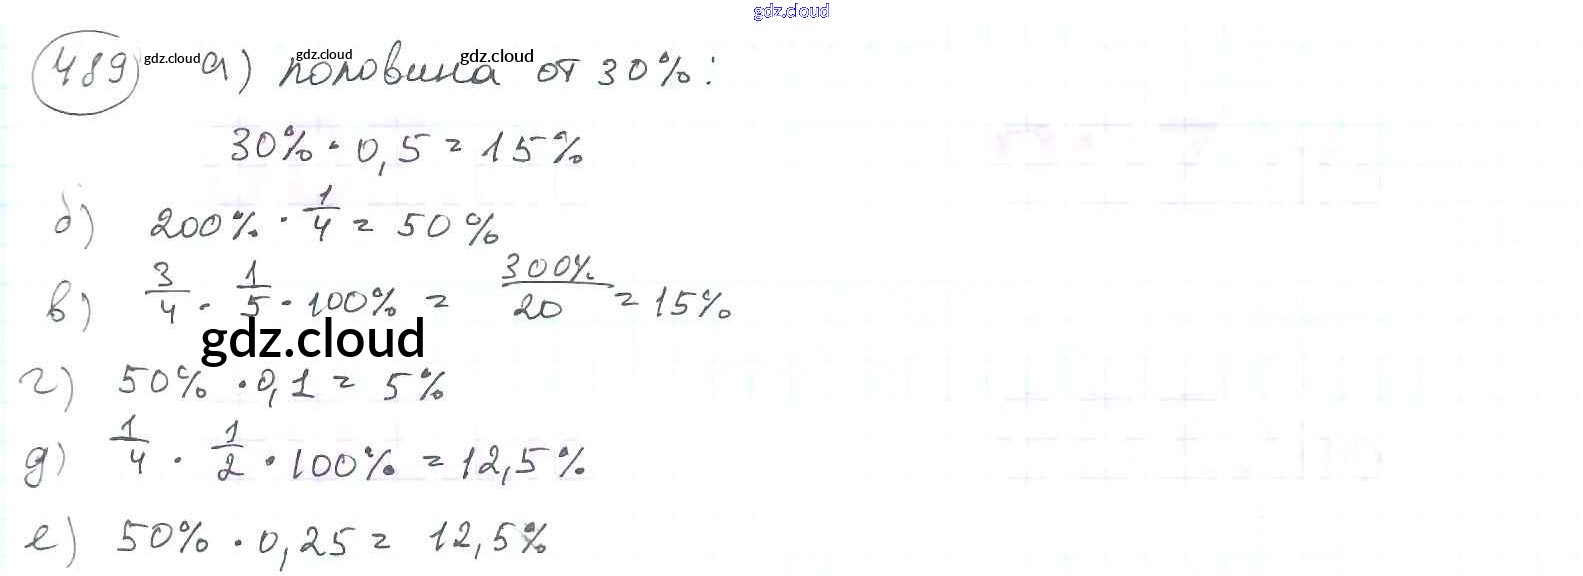 gdz.cloud
489 gdz.cloud а) gdz.cloud половина gdz.cloud от 30%:
30% · 0,5 = 15%
б) 200% · 1/4 = 50%
в) 3/4 · 1/5 · 100% = 300%/20 = 15%
gdz.cloud
г) 50% · 0,1 = 5%
д) 1/4 · 1/2 · 100% = 12,5%
е) 50% · 0,25 = 12,5%